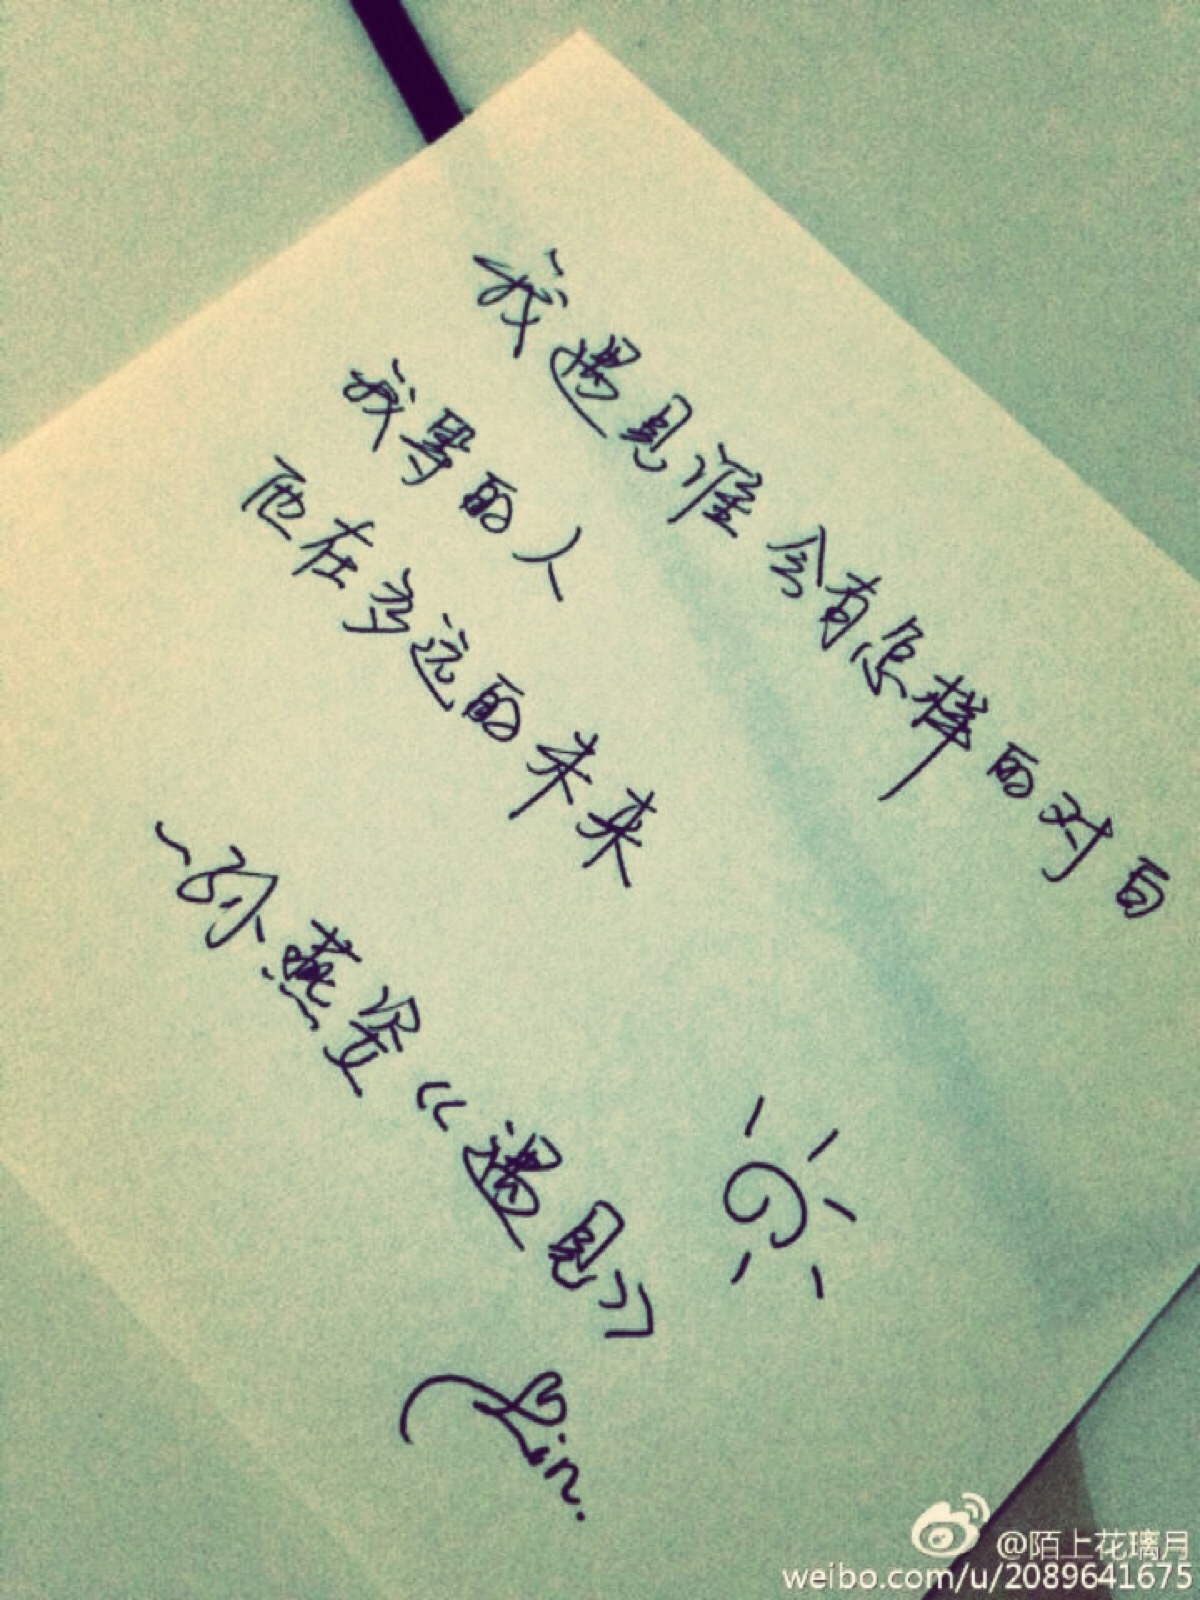 我遇见谁 会有怎样的对白
我等的人
他在多远的未来
~孙燕姿《遇见》
Lin.
@陌上花璃月
weibo.com/u/2089641675